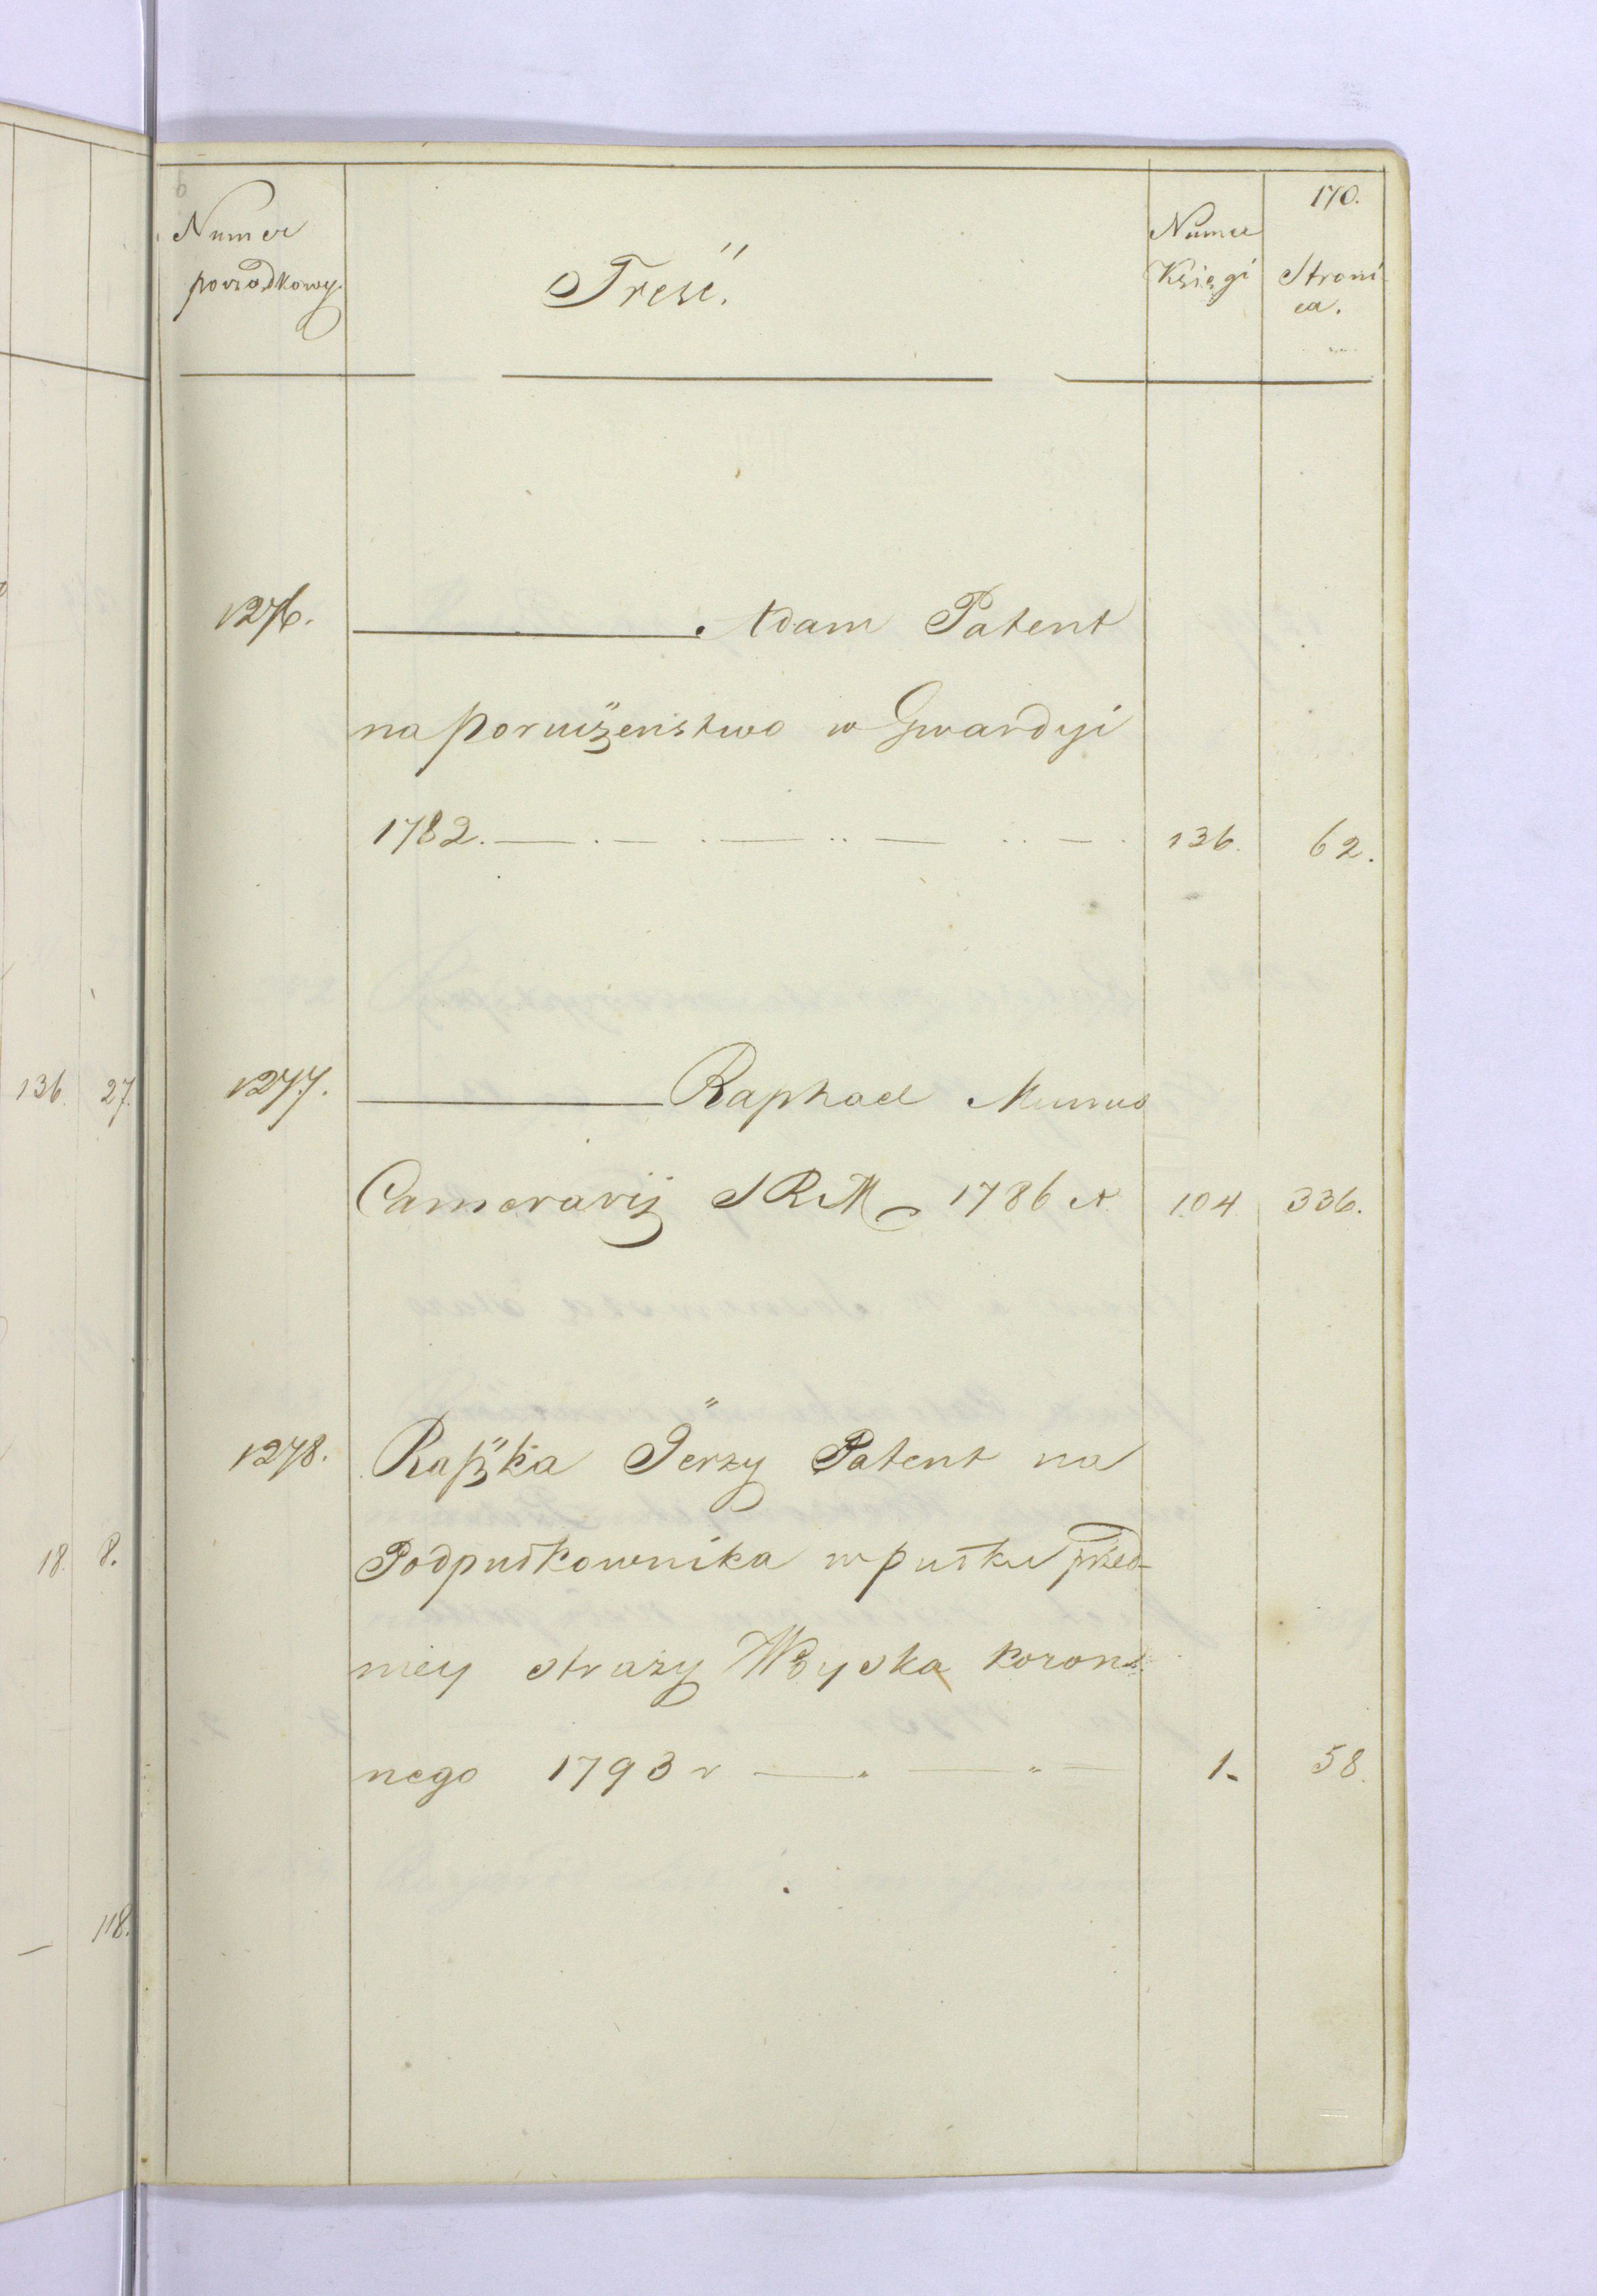 170.
Numer porządkowy.
Treść.
Numer Księgi
Stronica.
1276. ——— Adam Patent
na Poruczeństwo w Gwardyi
1782. — . — . — .. — .. — . 136. 62.
1277. ——— Raphael Munus
Camerarij SRM 1786 r. 104 336.
1278. Raszka Jerzy Patent na
Podpułkownika w pułku przed-
niey straży Woyska koron-
nego 1793 r — . — " — 1. 58.
136. 27.
18. 8.
— 118.